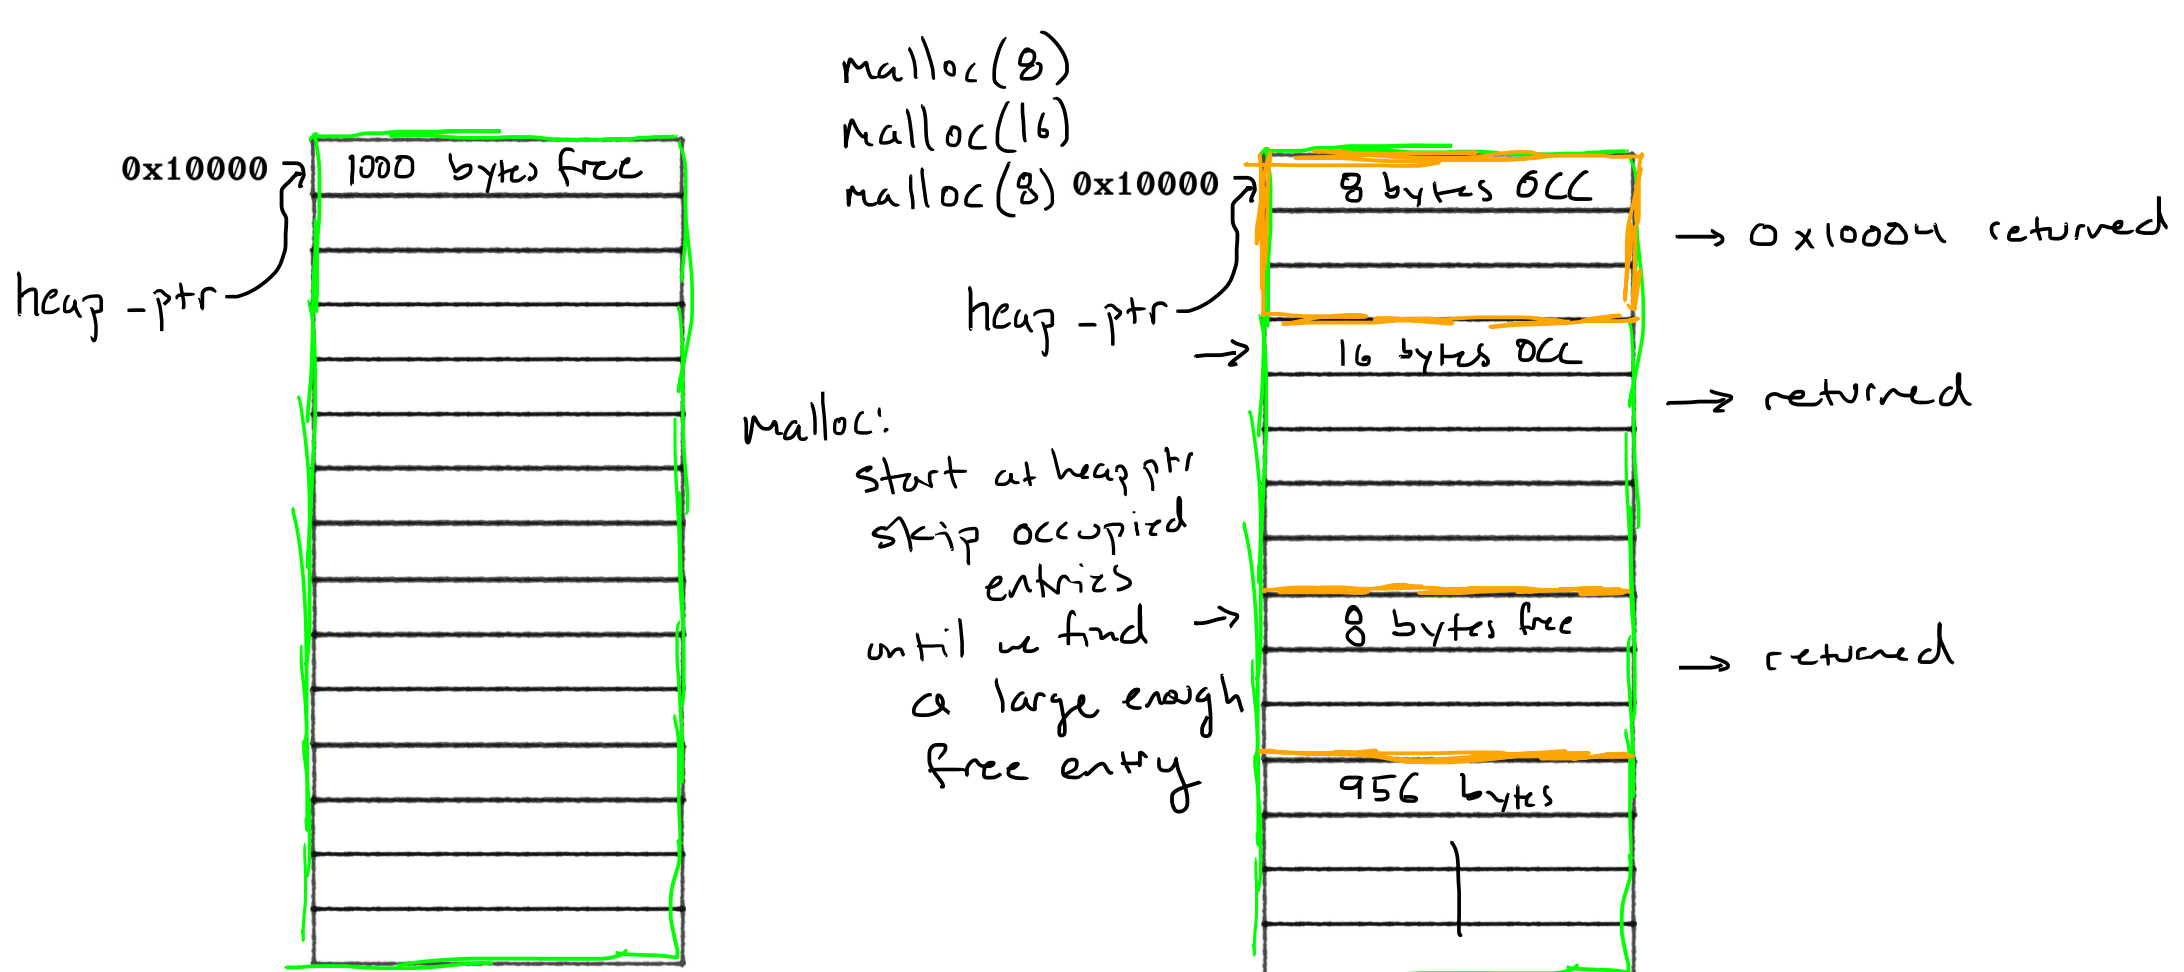 0x10000
1000 bytes free
heap_ptr
malloc(8)
malloc(16)
malloc(8)
0x10000
heap_ptr
malloc:
start at heap ptr
skip occupied
entries
until we find
a large enough
free entry
8 bytes OCC
→ 0x10004 returned
16 bytes OCC
→ returned
8 bytes free
→ returned
956 bytes